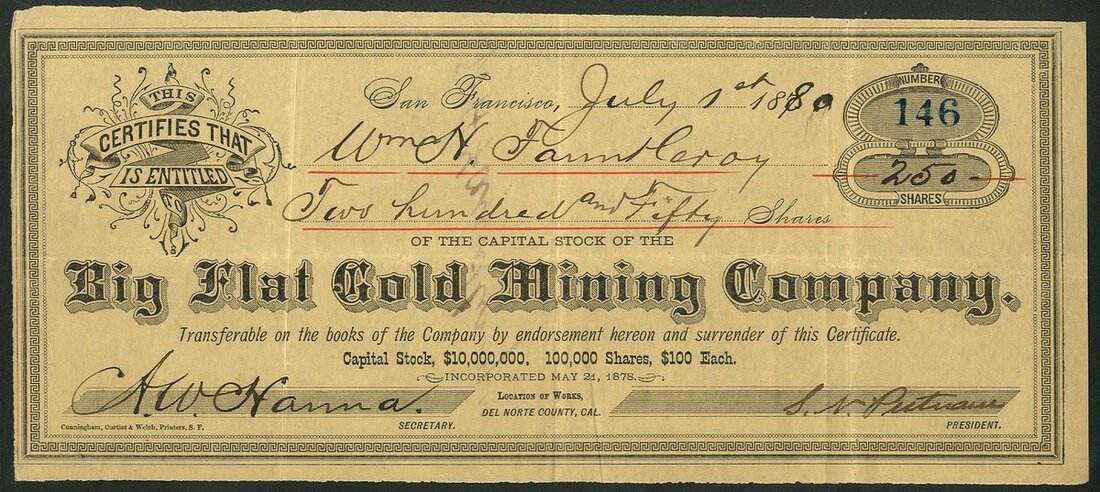 San Francisco, July 1st 1880
NUMBER
146
THIS
CERTIFIES THAT
IS ENTITLED
TO
Wm N. Fauntleroy
250-
SHARES
Two hundred and Fifty Shares
OF THE CAPITAL STOCK OF THE
Big Flat Gold Mining Company.
Transferable on the books of the Company by endorsement hereon and surrender of this Certificate.
Capital Stock, $10,000,000. 100,000 Shares, $100 Each.
INCORPORATED MAY 21, 1878.
A. W. Hanna. LOCATION OF WORKS, S. N. Putnam
DEL NORTE COUNTY, CAL.
Cunningham, Curtiss & Welch, Printers, S. F. SECRETARY. PRESIDENT.